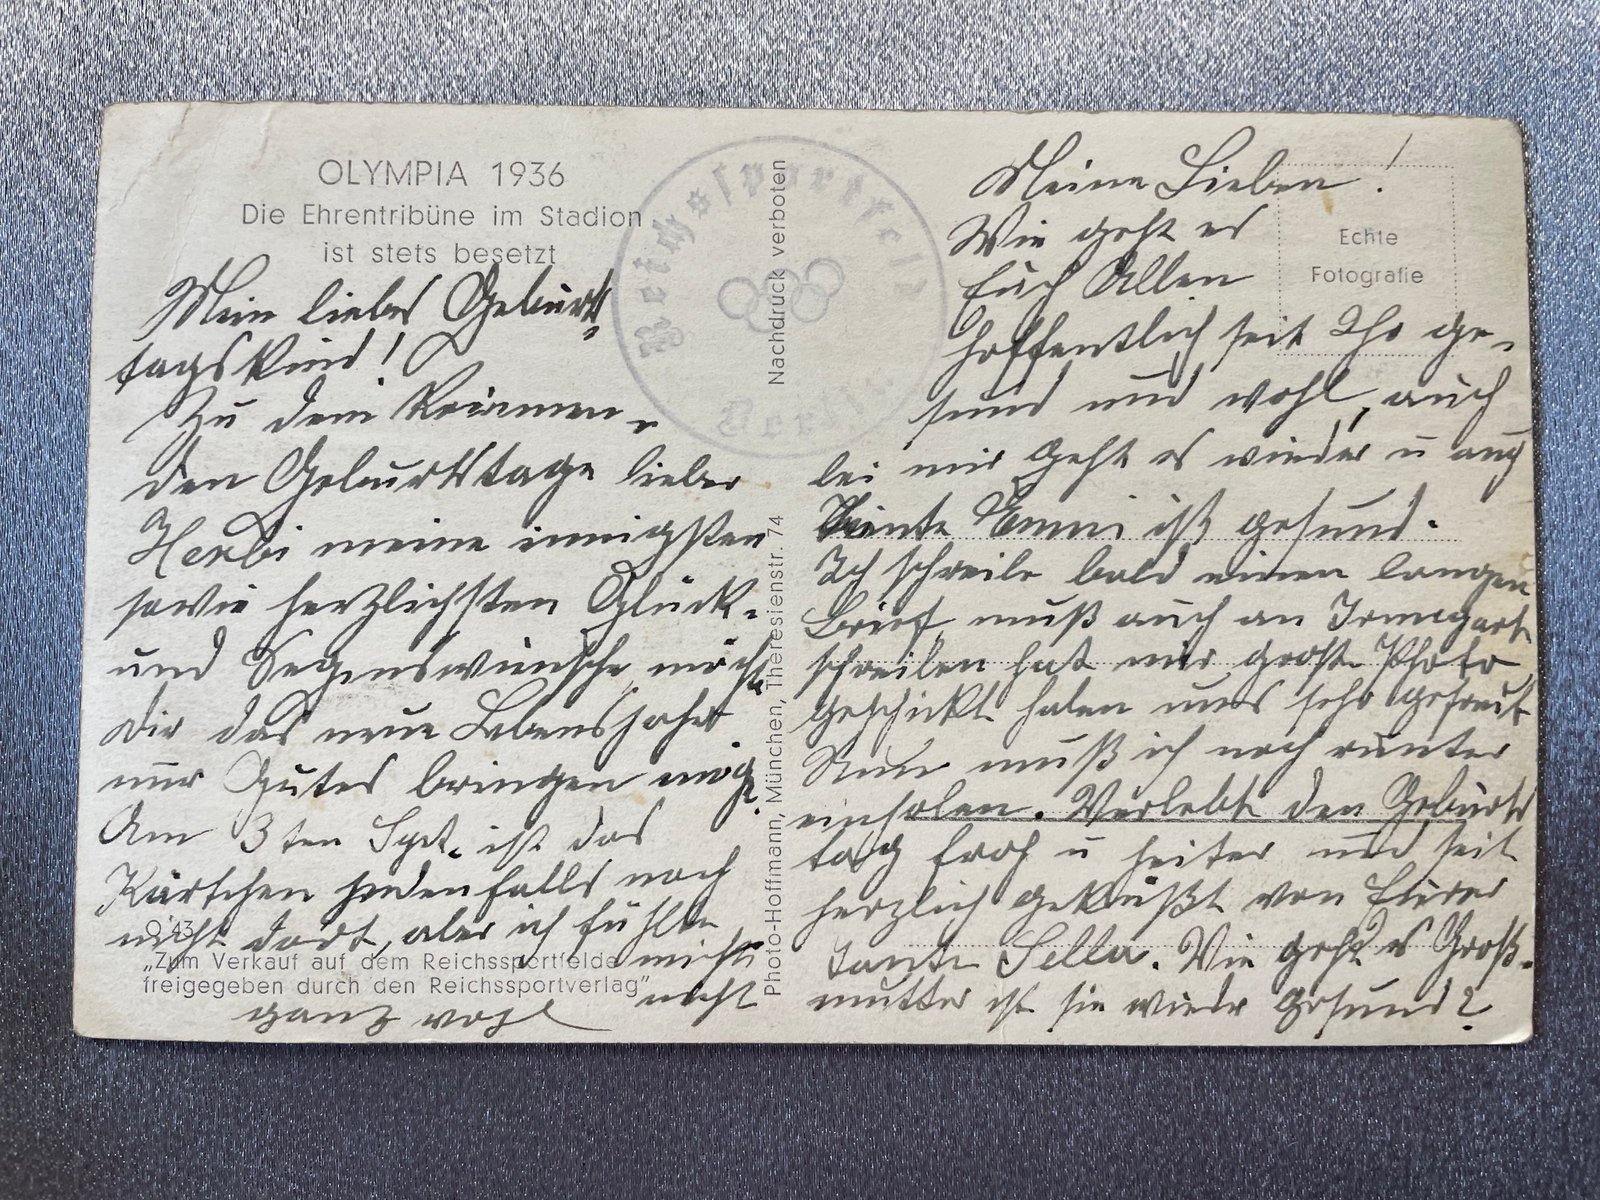 OLYMPIA 1936
Die Ehrentribüne im Stadion
ist stets besetzt
Mein liebes Geburts-
tagskind!
Zu dem
den Geburtstage lieber
Herbi meine innigsten
sowie herzlichsten Glück-
und Segenswünsche, möcht
Dir das neue Lebensjahr
nur Gutes bringen mög
Am 3ten Sept. ist das
Kärtchen jedenfalls noch
nicht dort, aber ich fühle
mich
nicht
ganz wohl
O 43
„Zum Verkauf auf dem Reichssportfelde
freigegeben durch den Reichssportverlag"
Reichssportfeld
Berlin
Nachdruck verboten
Photo-Hoffmann, München, Theresienstr. 74
Echte
Fotografie
Meine Lieben!
Wie geht es
Euch Allen
hoffentlich seit Ihr ge-
sund und wohl, auch
bei mir geht es wieder u auch
Tante Emmi ist gesund.
Ich schreibe bald einen langen
Brief, muß auch an Irmegart
schreiben hat mir große Photo
geschickt haben uns sehr gefreut
Nun muß ich noch runter
einholen. Verlebt den Geburts
tag froh u heiter und seit
herzlich geküßt von Eurer
Tante Sella. Wie geht es Groß-
mutter ist sie wieder gesund?